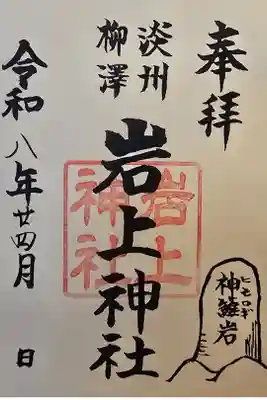 奉拝
淡州
柳澤
岩上神社
岩上
神社
令和八年廿四月 日
ヒモロギ
神籬岩